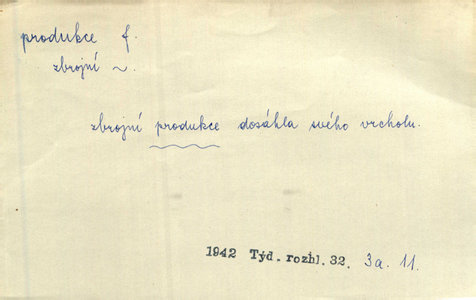 produkce f.
zbrojní ~.
zbrojní produkce dosáhla svého vrcholu.
1942 Týd. rozhl. 32. 3a. 11.